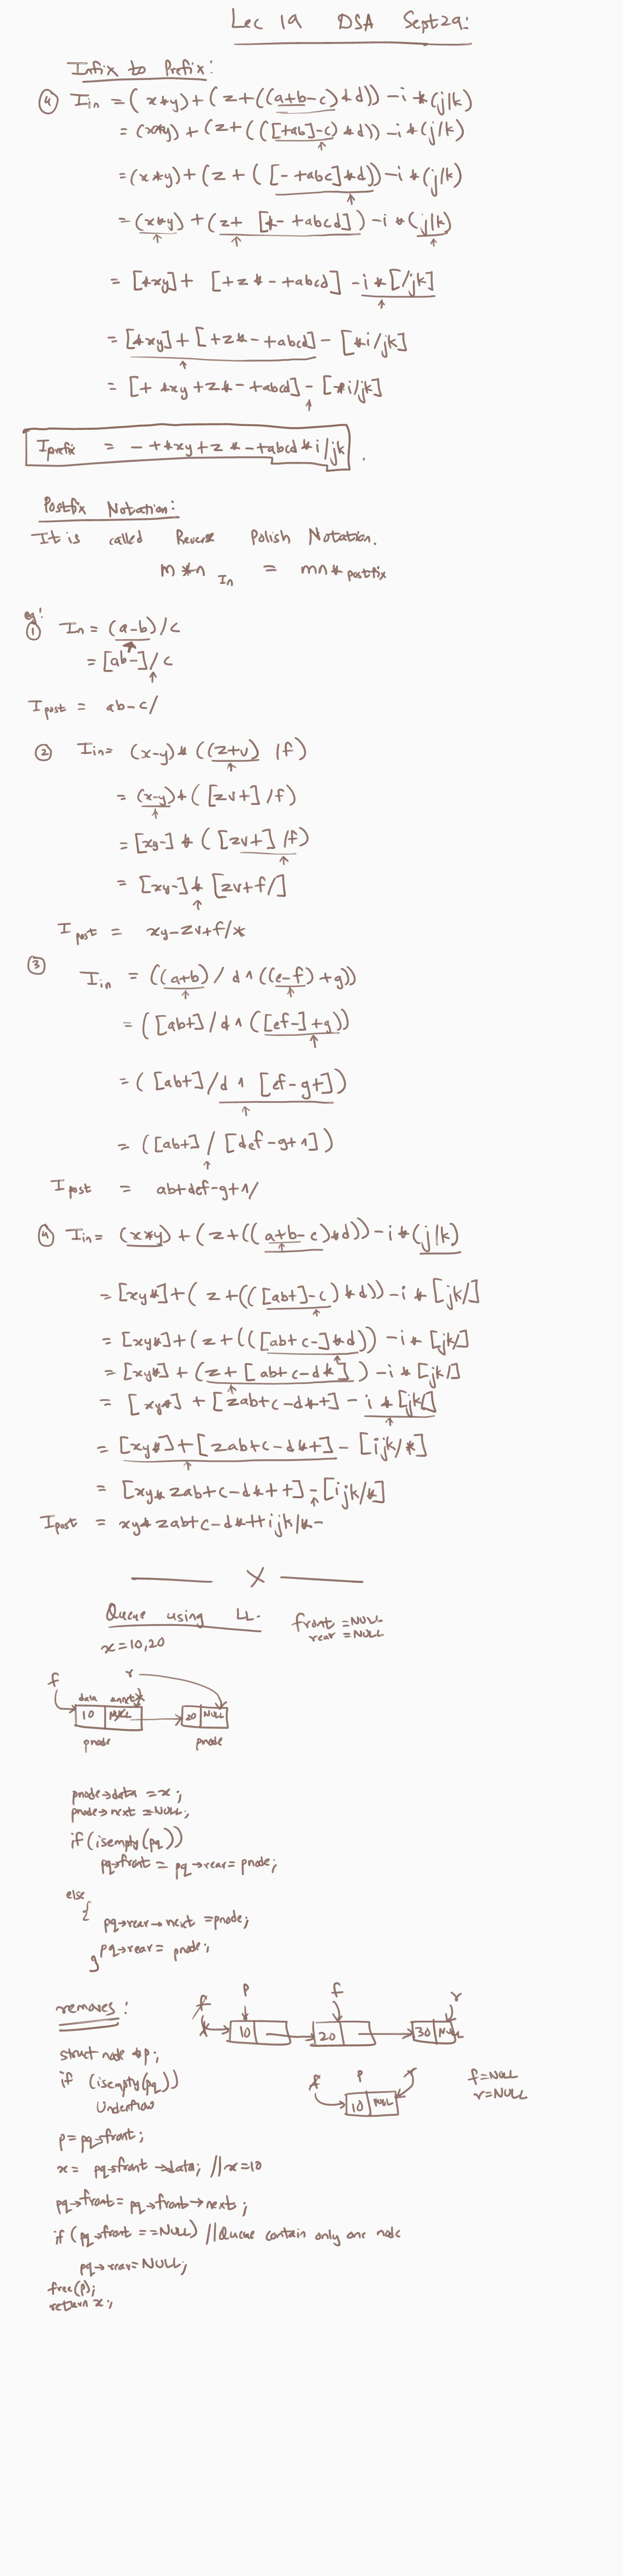 Lec 19 DSA Sept 29:
Infix to Prefix:
④ I_in = (x*y)+(z+((a+b-c)*d))-i*(j/k)
= (x*y)+(z+(([+ab]-c)*d))-i*(j/k)
=(x*y)+(z+([-+abc]*d))-i*(j/k)
=(x*y)+(z+[*-+abcd])-i*(j/k)
= [*xy]+ [+z*-+abcd] -i*[/jk]
= [*xy]+[+z*-+abcd] - [*i/jk]
= [+*xy+z*-+abcd] - [*i/jk]
I_prefix = -+*xy+z*-+abcd*i/jk.
Postfix Notation:
It is called Reverse Polish Notation.
m*n_In = mn*_postfix
eg:
① In = (a-b)/c
= [ab-]/c
I_post = ab-c/
② I_in= (x-y)*((z+v)/f)
= (x-y)*([zv+]/f)
= [xy-]*([zv+]/f)
= [xy-]*[zv+f/]
I_post = xy-zv+f/*
③ I_in = ((a+b)/d^((e-f)+g))
= ([ab+]/d^([ef-]+g))
= ([ab+]/d^[ef-g+])
= ([ab+]/[def-g+^])
I_post = ab+def-g+^/
④ I_in= (x*y)+(z+((a+b-c)*d))-i*(j/k)
= [xy*]+(z+(([ab+]-c)*d))-i*[jk/]
= [xy*]+(z+(([ab+c-]*d))-i*[jk/]
= [xy*]+(z+[ab+c-d*])-i*[jk/]
= [xy*] + [zab+c-d*+] - i*[jk/]
= [xy*]+[zab+c-d*+] - [ijk/*]
= [xy*zab+c-d*++] - [ijk/*]
I_post = xy*zab+c-d*++ijk/*-
X
Queue using LL. front = NULL
x=10,20 rear = NULL
f r
data next
10 NULL 20 NULL
pnode pnode
pnode→data = x;
pnode→next = NULL;
if(isempty(pq))
pq→front = pq→rear = pnode;
else
{
pq→rear→next = pnode;
pq→rear = pnode;
}
removes:
f p f r
10 20 30 NULL
struct node *p;
if (isempty(pq))
Underflow
f p r f=NULL
10 NULL r=NULL
p=pq→front;
x= pq→front→data; //x=10
pq→front = pq→front→next;
if (pq→front == NULL) //Queue contain only one node
pq→rear=NULL;
free(p);
return x;